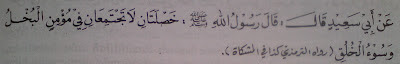 عَنْ أَبِي سَعِيدٍ قَالَ : قَالَ رَسُولُ اللهِ ﷺ : خَصْلَتَانِ لَا تَجْتَمِعَانِ فِي مُؤْمِنٍ الْبُخْلُ
وَسُوْءُ الْخُلُقِ ( رواه الترمذي كذا في المشكاة ).